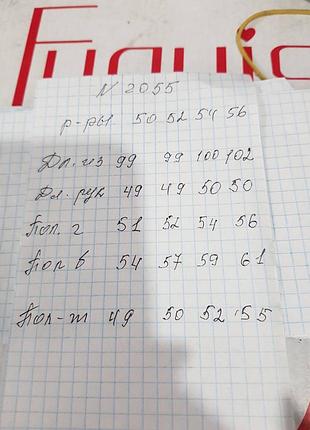 Fuqua
N 2055
р-ры 50 52 54 56
Дл. из 99 99 100 102
Дл. рук 49 49 50 50
Пол. г 51 52 54 56
Пол б 54 57 59 61
Пол-т 49 50 52 55